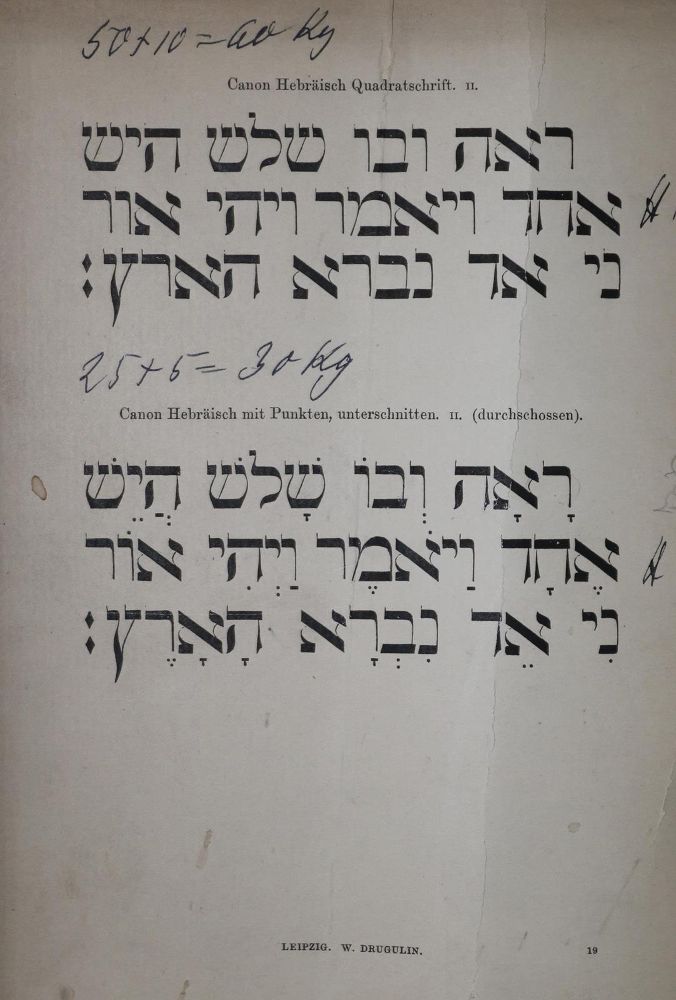 50+10=60 Kg
Canon Hebräisch Quadratschrift. II.
ראה ובו שלש היש
אחד ויאמר ויהי אור
ני אד נברא הארץ:
25+5=30 Kg
Canon Hebräisch mit Punkten, unterschnitten. II. (durchschossen).
רָאָה וְבוֹ שָׁלֹשׁ הֲיֵשׁ
אֶחָד וַיֹּאמֶר וַיְהִי אוֹר
נִי אֵד נִבְרָא הָאָרֶץ:
LEIPZIG. W. DRUGULIN.
19